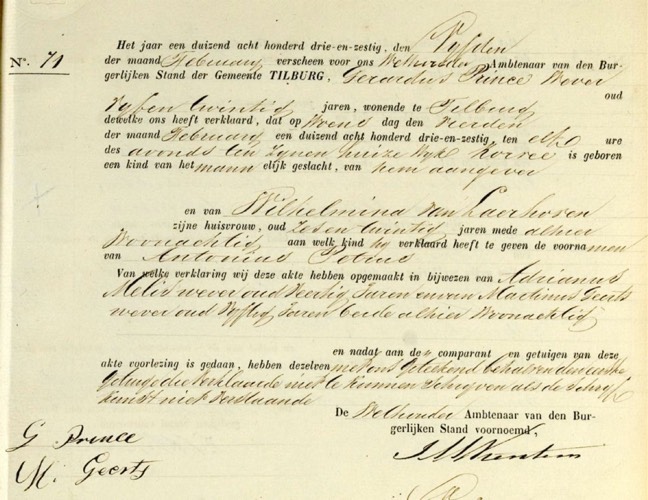 Nº. 71
Het jaar een duizend acht honderd drie-en-zestig, den Vyfden
der maand February verscheen voor ons Wethouder Ambtenaar van den Bur-
gerlijken Stand der Gemeente TILBURG, Gerardus Prince Wever
oud
Vyfen twintig jaren, wonende te Tilburg
dewelke ons heeft verklaard, dat op Woens dag den Vierden
der maand February een duizend acht honderd drie-en-zestig, ten elf ure
des avonds ten zynen huize Wyk Korvel is geboren
een kind van het mann elijk geslacht, van hem aangever
en van Wilhelmina van Laerhoven
zijne huisvrouw, oud Zesen twintig jaren mede alhier
Woonachtig aan welk kind hy verklaard heeft te geven de voornamen
van Antonius
Van welke verklaring wij deze akte hebben opgemaakt in bijwezen van Adrianus
Melis wever oud Veertig Jaren en van Martinus Geerts
wever oud Vyftig Jaren beide alhier Woonachtig
en nadat aan de comparant en getuigen van deze
akte voorlezing is gedaan, hebben dezelven met ons geteekend behalven den eersten
getuige die verklaarde niet te kunnen schryven als de schryf
kunst niet verstaande
De Wethouder Ambtenaar van den Bur-
gerlijken Stand voornoemd,
G Prince
M. Geerts